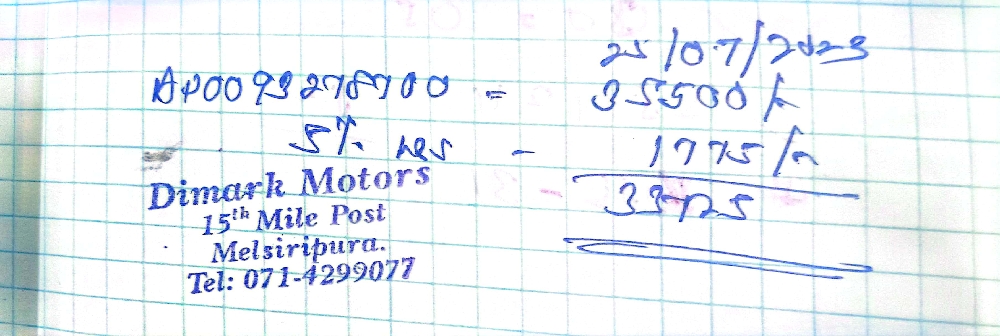 25/07/2023
AP0093278700 - 35500/-
5% les - 1775/-
33725
Dimark Motors
15th Mile Post
Melsiripura.
Tel: 071-4299077